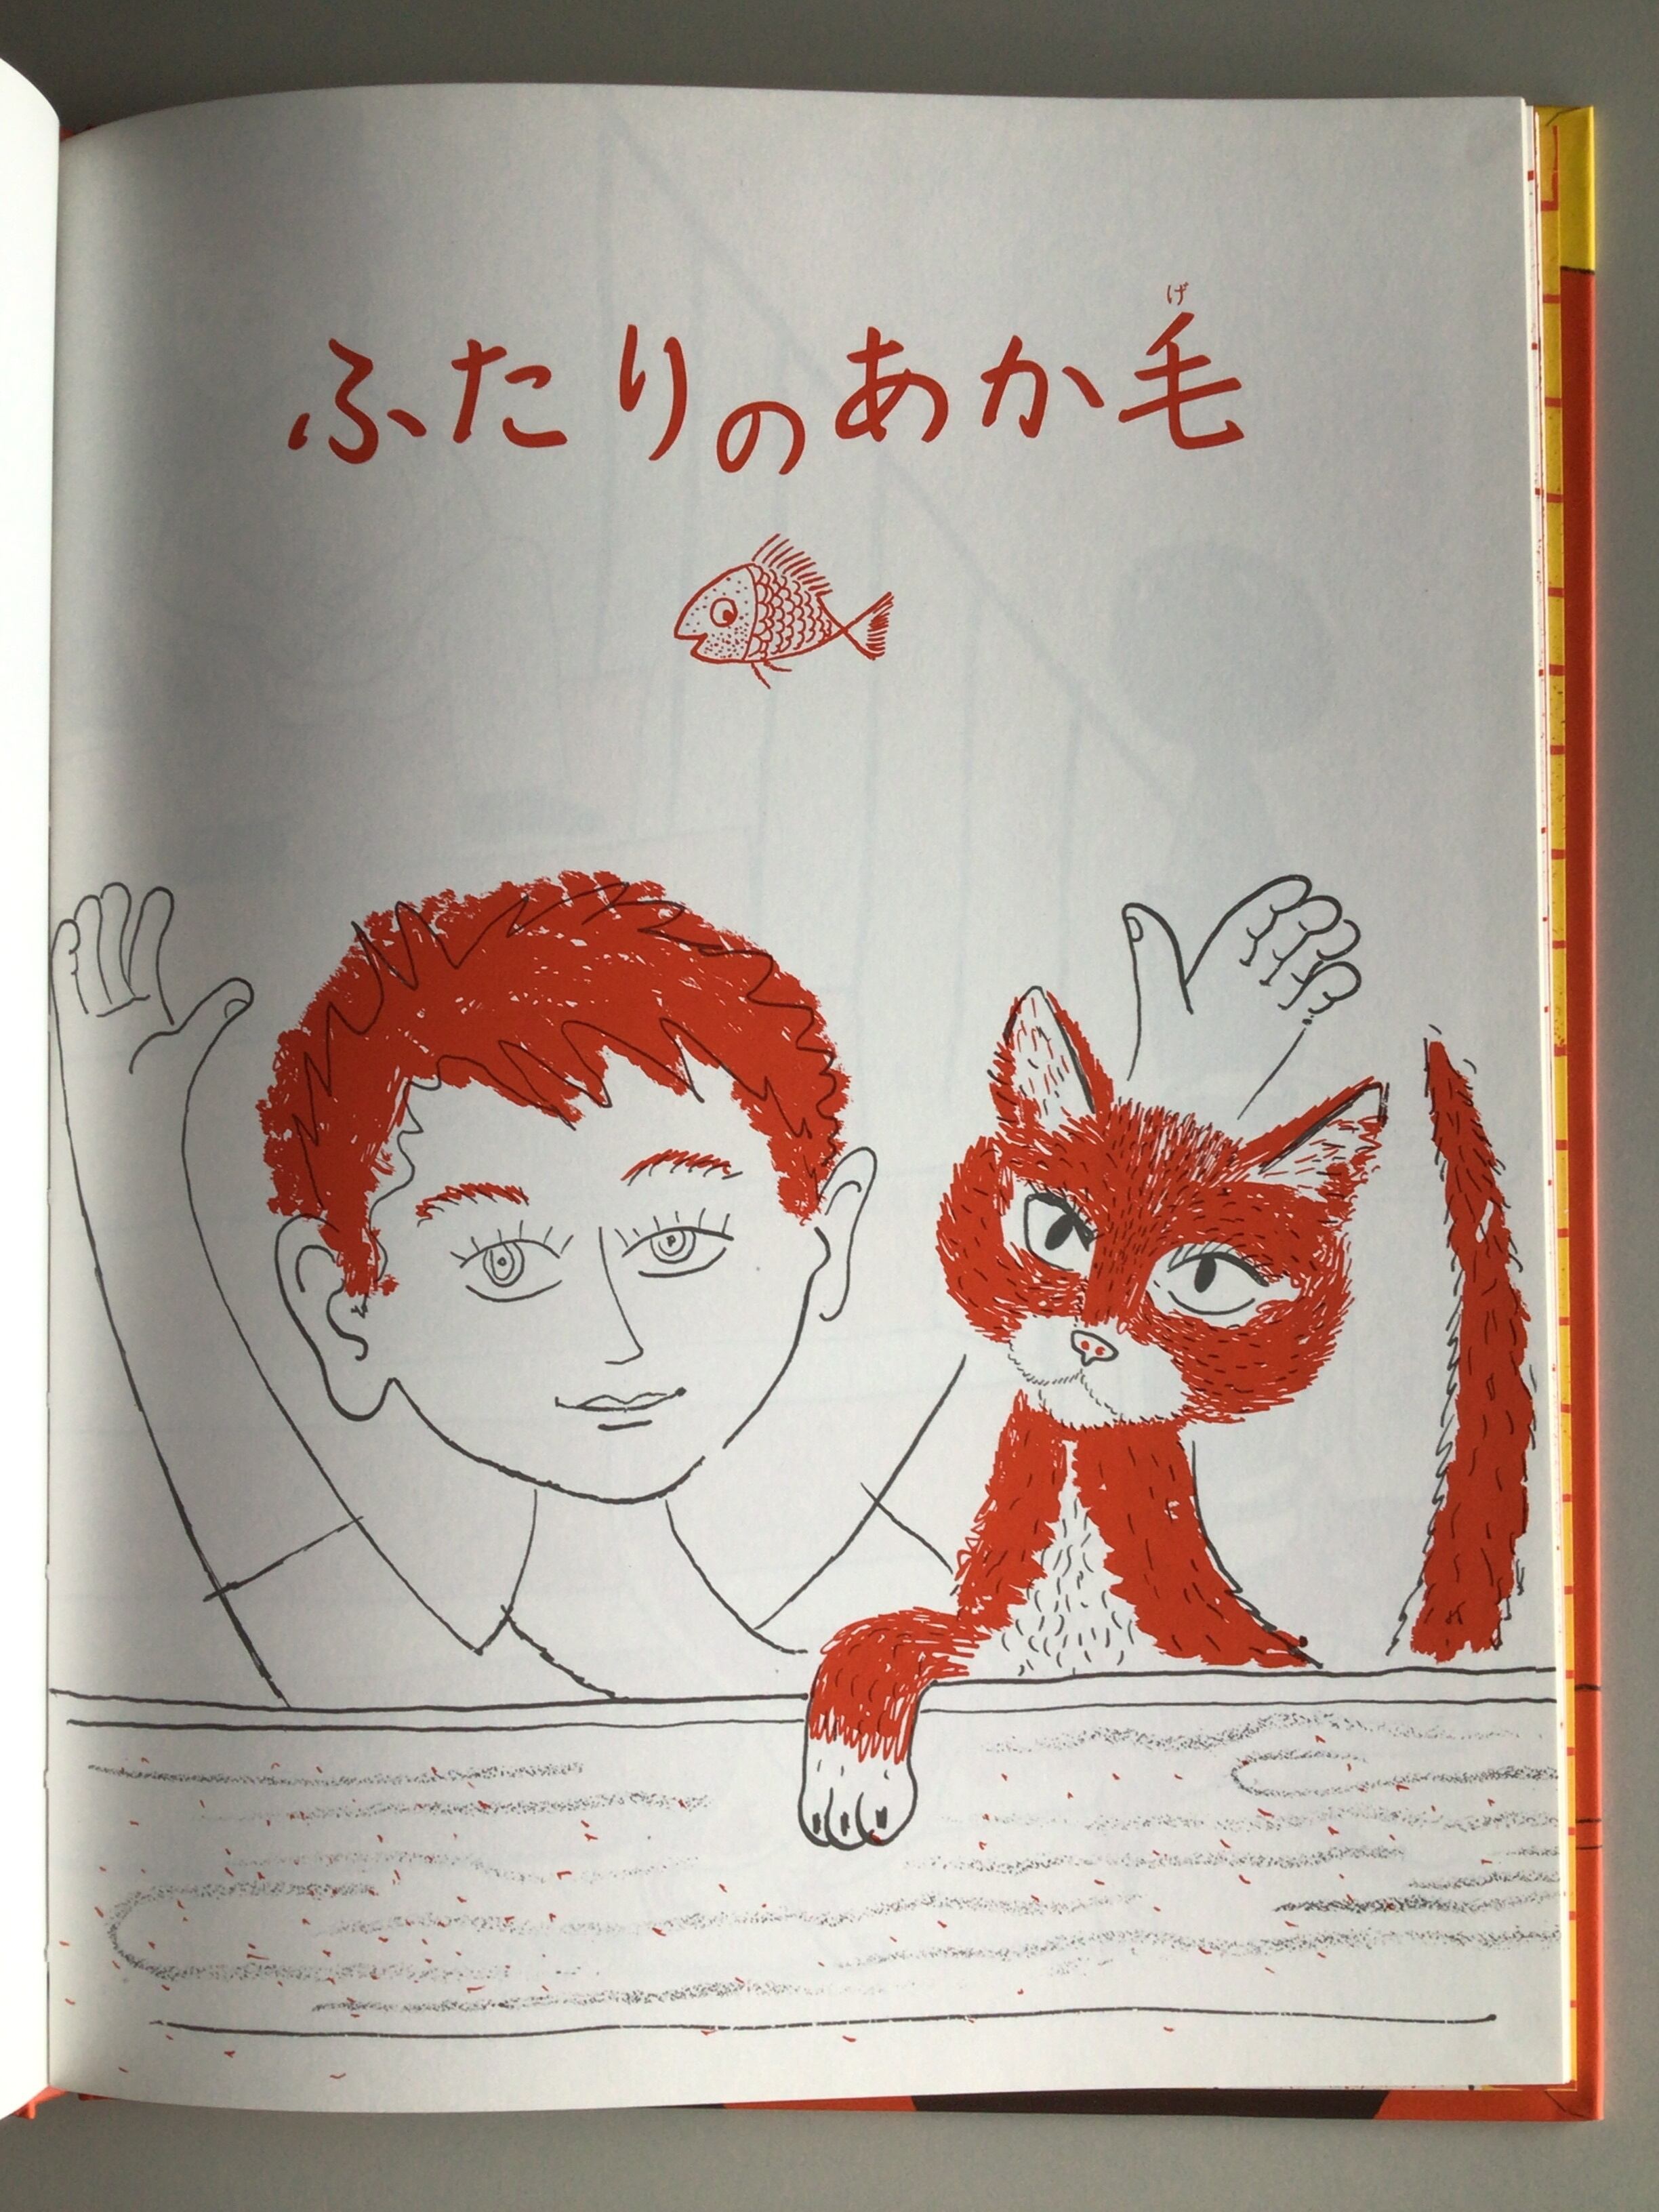 げ
ふたりのあか毛